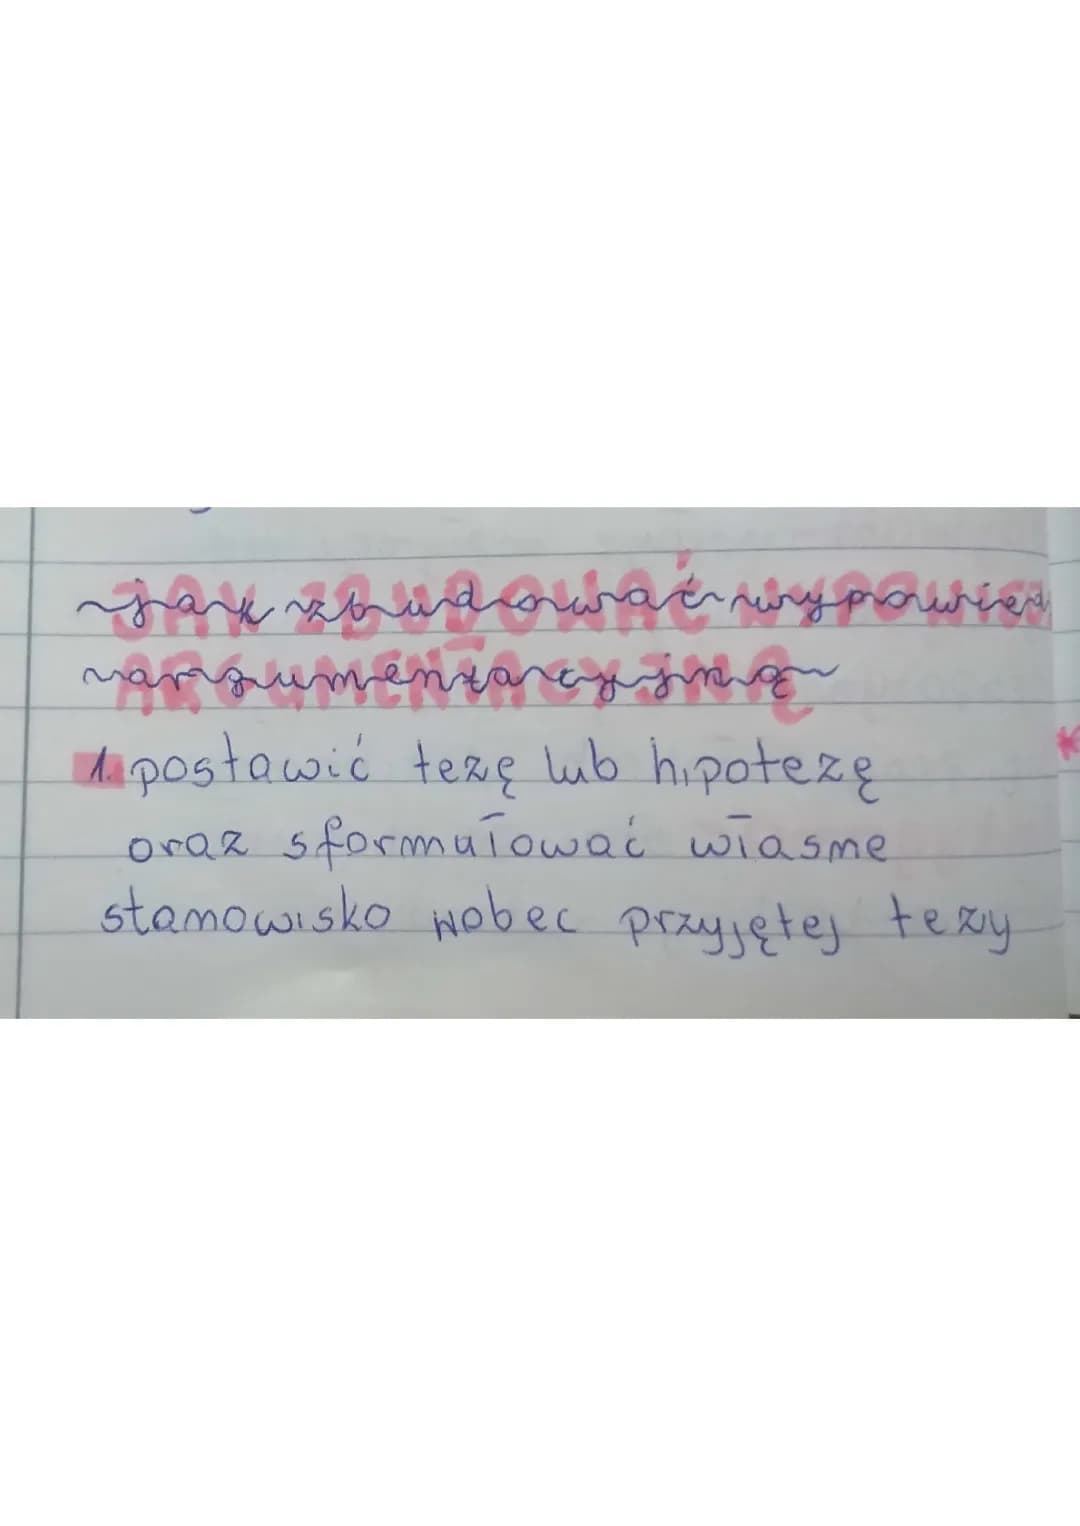 jak zbudować wypowied
argumentacyjną
1. postawić tezę lub hipotezę
oraz sformułować własne
stanowisko wobec przyjętej tezy